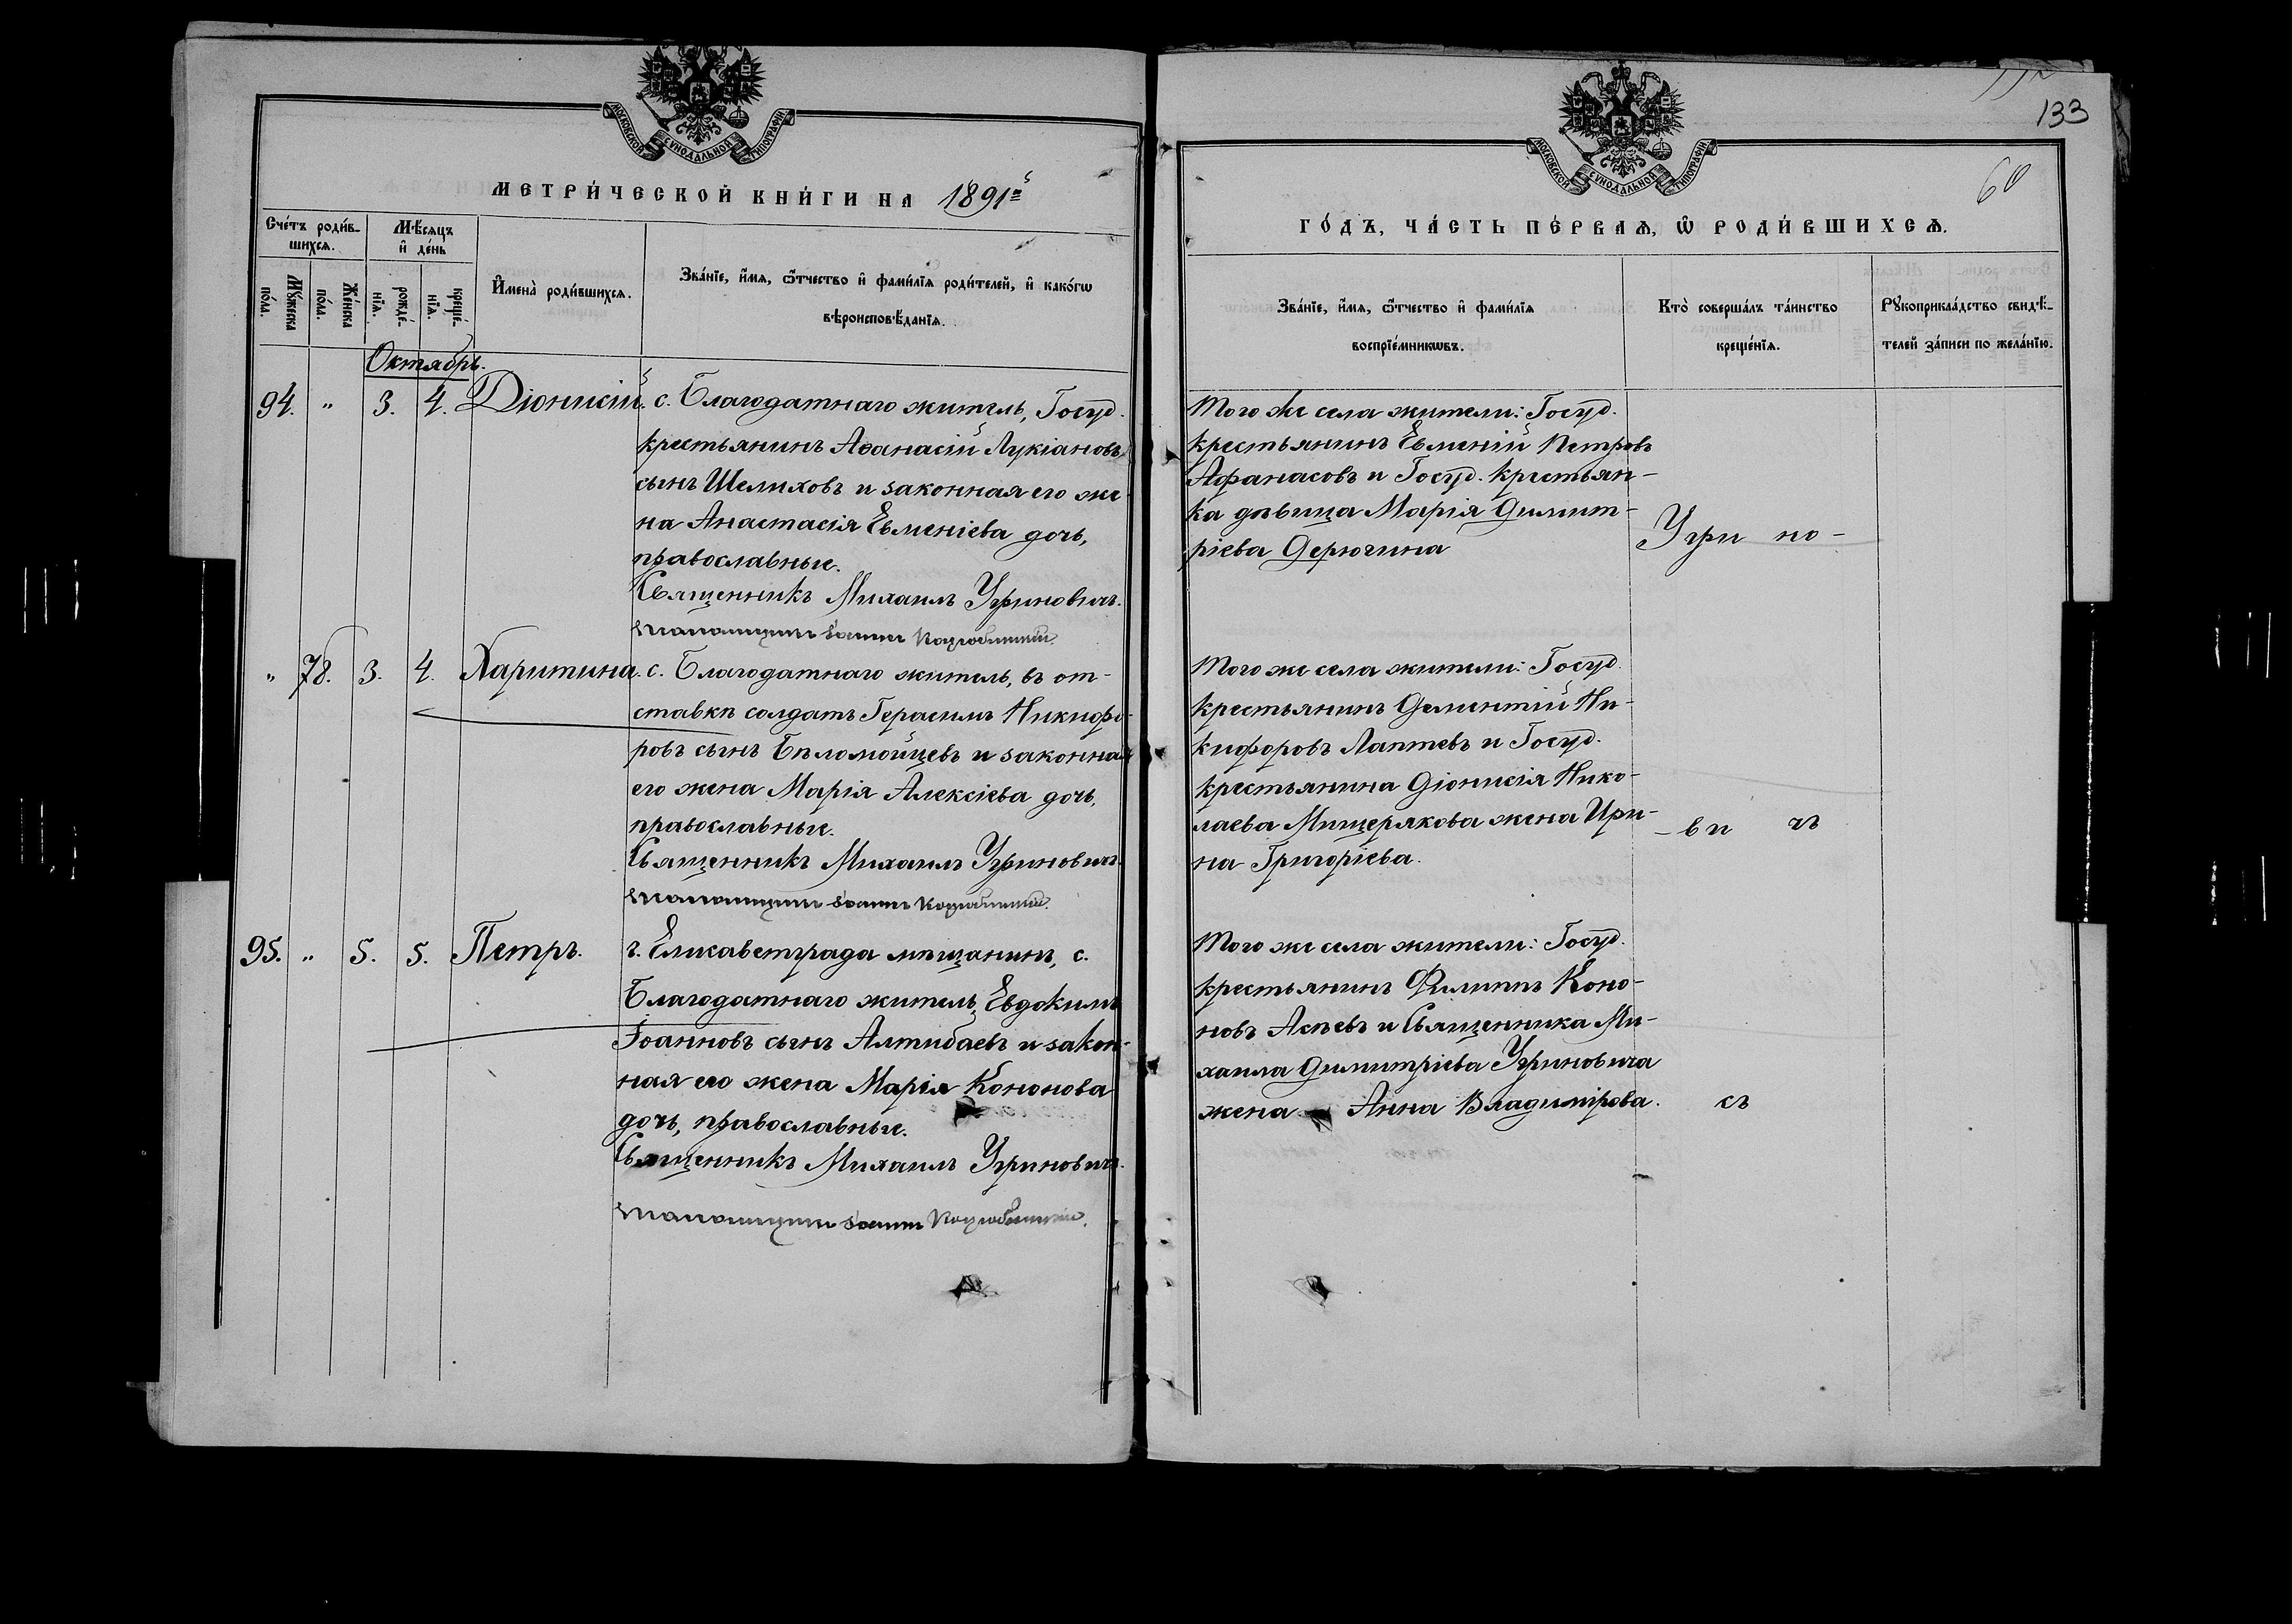 МОСКОВСКОЙ СѴНОДАЛЬНОЙ ТИПОГРАФІИ
МЕТРИ́ЧЕСКОЙ КНИ́ГИ НА 1891й
Сче́тъ роди́в-
шихсѧ.
Мѣ́сяцъ
и҆ де́нь
Мꙋ́жеска
по́ла.
Же́нска
по́ла.
рожде́-
нїѧ.
креще́-
нїѧ.
И҆мена̀ роди́вшихсѧ.
Зва́нїе, и҆́мѧ, ѻ҆́тчество и҆ фами́лїѧ роди́телей, и҆ како́гѡ
вѣроисповѣ́данїѧ.
Октябрь.
94. " 3. 4. Діонисій. с. Благодатнаго житель, Госуд.
крестьянинъ Аѳанасій Лукіановъ
сынъ Шелиховъ и законная его же
на Анастасія Евменіева дочь,
православные.
Священникъ Михаилъ Угриновичъ.
" 78. 3. 4. Харитина. с. Благодатнаго житель, въ от-
ставкѣ солдатъ Герасимъ Никифо-
ровъ сынъ Бѣломойцевъ и законная
его жена Марія Алексіева дочь,
православные.
Священникъ Михаилъ Угриновичъ.
95. " 5. 5. Петръ. г. Елисаветграда мѣщанинъ, с.
Благодатнаго житель, Евдокимъ
Іоанновъ сынъ Алтибаевъ и закон-
ная его жена Марія Кононова
дочь, православные.
Священникъ Михаилъ Угриновичъ.
133
60
МОСКОВСКОЙ СѴНОДАЛЬНОЙ ТИПОГРАФІИ
ГО́ДЪ, ЧА́СТЬ ПЕ́РВАѦ, Ѡ҆ РОДИ́ВШИХСѦ.
Зва́нїе, и҆́мѧ, ѻ҆́тчество и҆ фами́лїѧ
воспрїе́мникѡвъ.
Кто̀ соверша́лъ та́инство
креще́нїѧ.
Рꙋкоприкла́дство свидѣ́-
телей за́писи по жела́нїю.
Того же села жители: Госуд.
крестьянинъ Евменій Петровъ
Афанасовъ и Госуд. крестьян-
ка дѣвица Марія Димит-
ріева Дерюгина
Угри но-
Того же села жители: Госуд.
крестьянинъ Дементій Ни-
кифоровъ Лаптевъ и Госуд.
крестьянина Діонисія Нико-
лаева Мищерякова жена Ири-
на Григоріева.
- ви чъ
Того же села жители: Госуд.
крестьянинъ Филиппъ Коно-
новъ Асѣевъ и Священника Ми-
хаила Димитріева Угриновича
жена Анна Владимірова.
съ